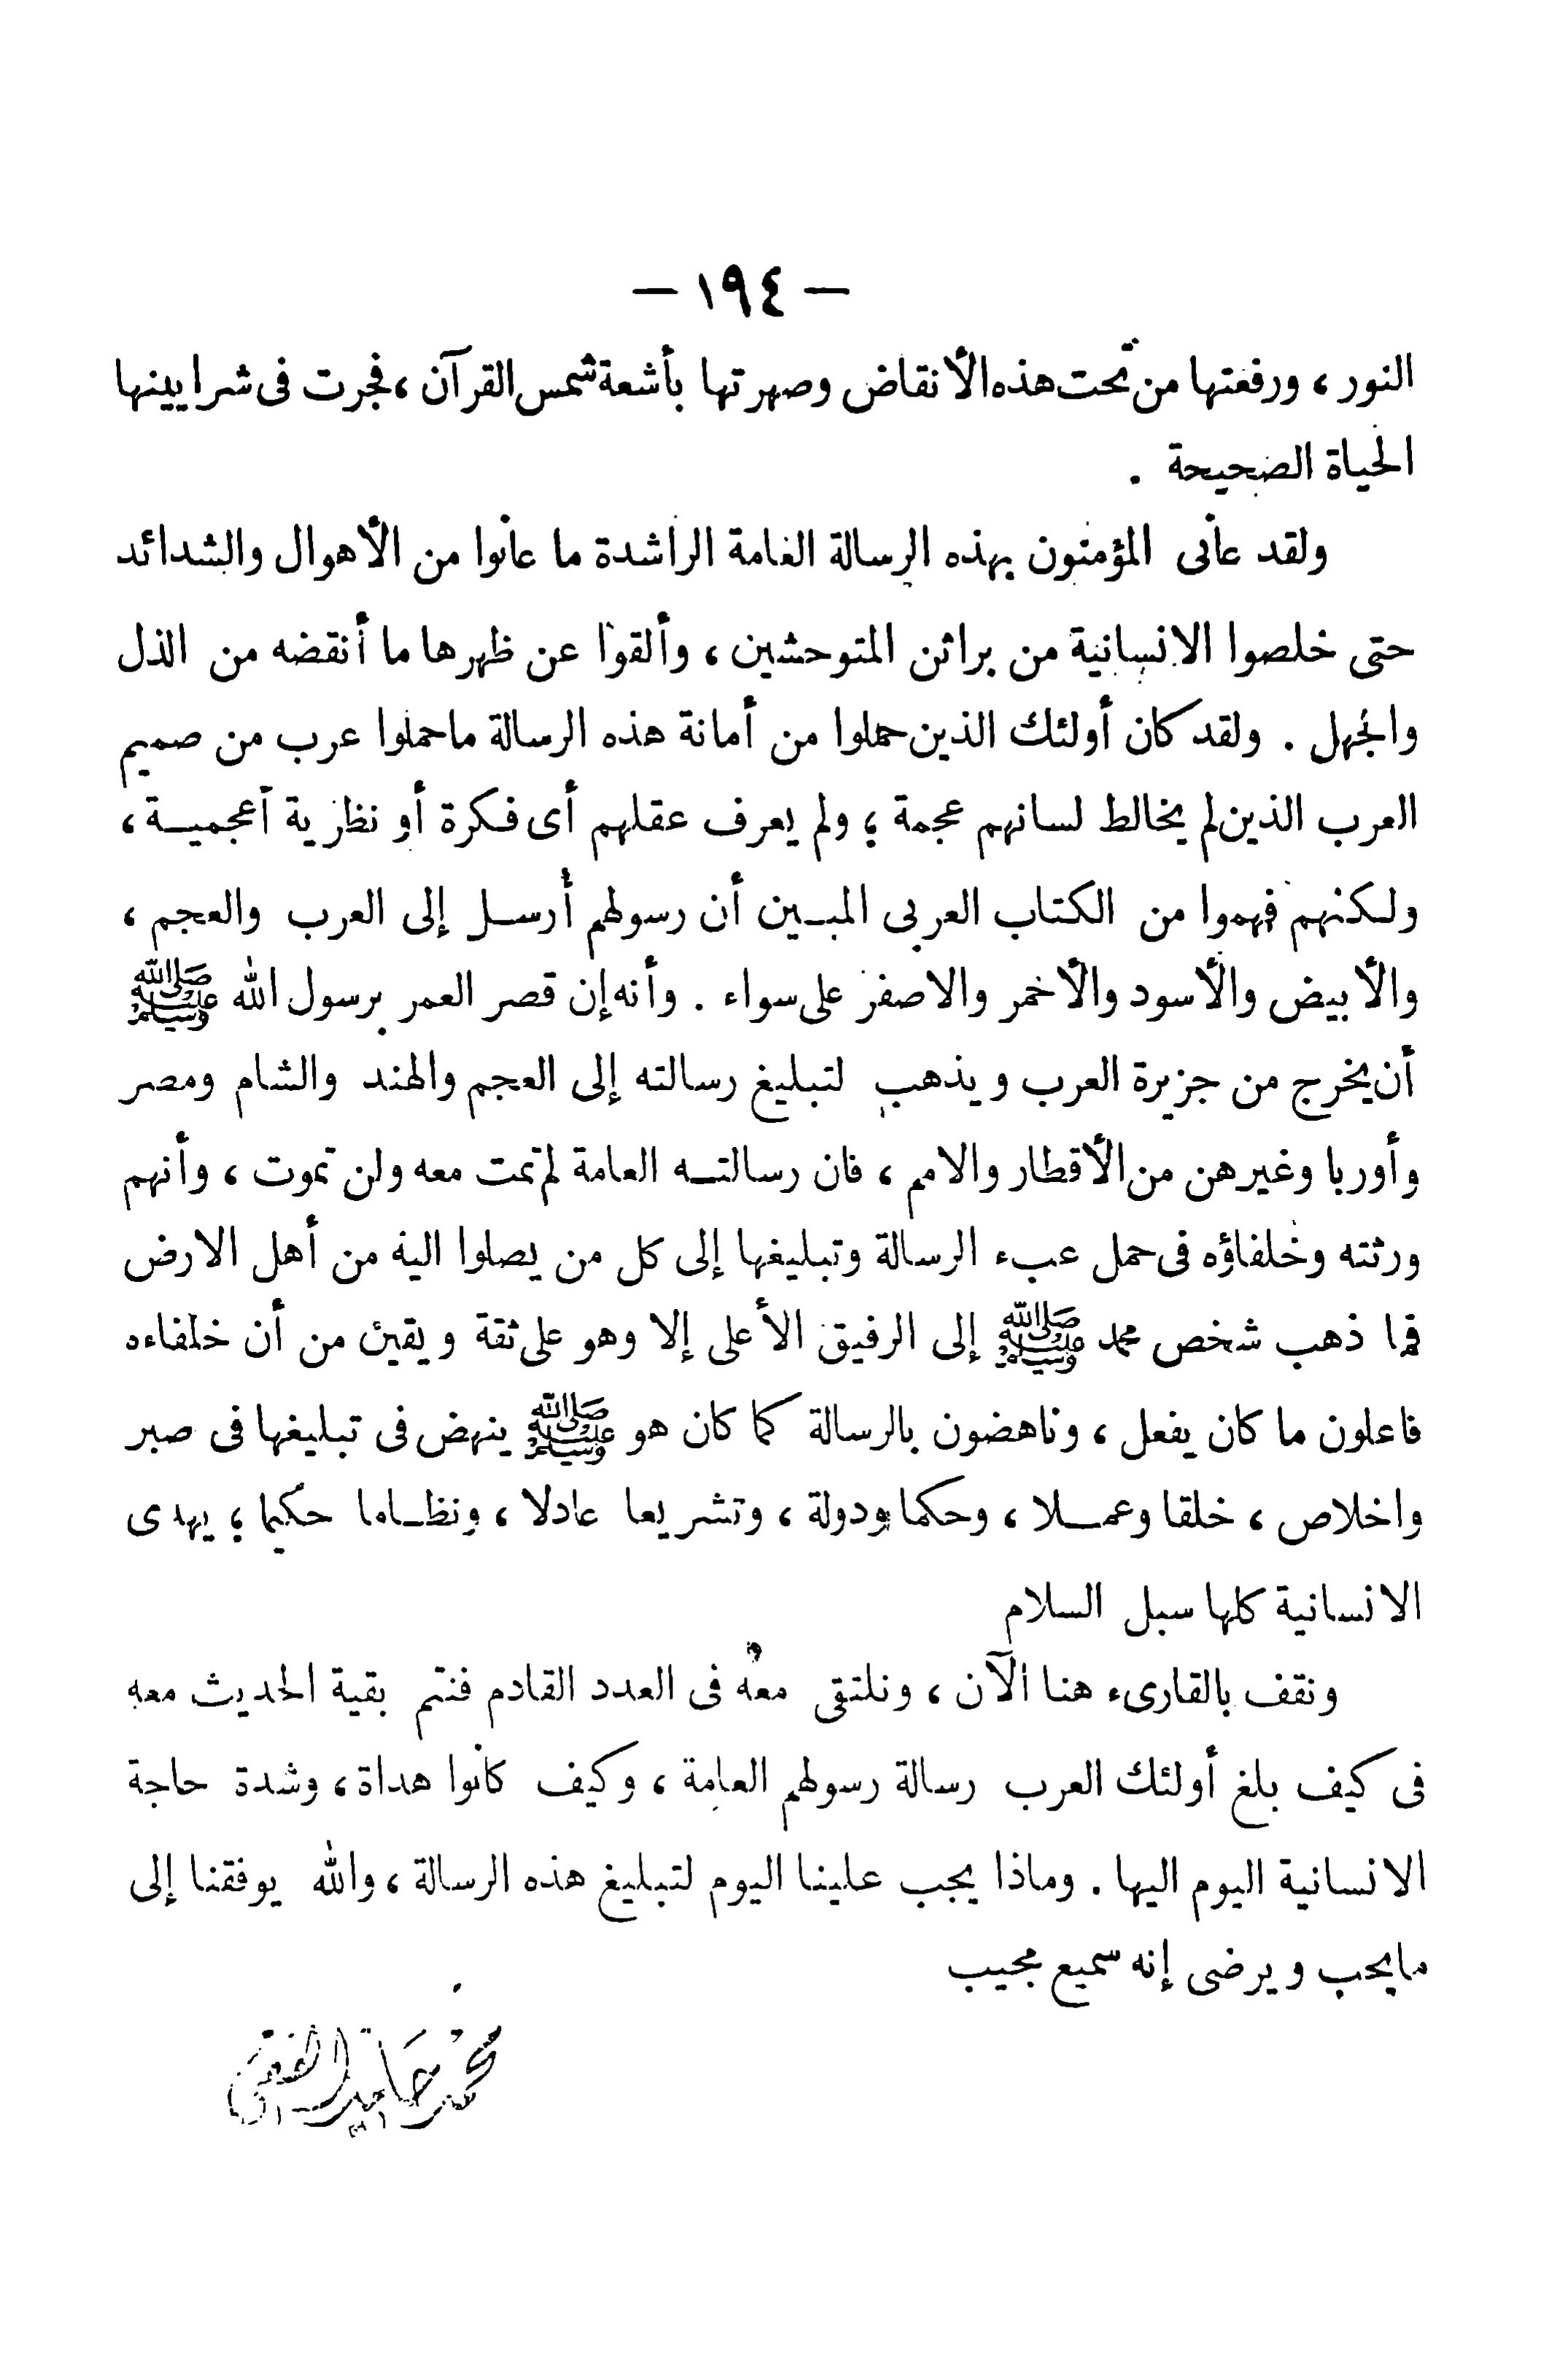 — ١٩٤ —
النور ، ورفعتها من تحت هذه الأنقاض وصهرتها بأشعة شمس القرآن ، فجرت فى شرايينها
الحياة الصحيحة .
ولقد عانى المؤمنون بهذه الرسالة العامة الراشدة ما عانوا من الأهوال والشدائد
حتى خلصوا الانسانية من براثن المتوحشين ، وألقوا عن ظهرها ما أنقضه من الذل
والجهل . ولقد كان أولئك الذين حملوا من أمانة هذه الرسالة ما حملوا عرب من صميم
العرب الذين لم يخالط لسانهم عجمة ؛ ولم يعرف عقلهم أى فكرة أو نظرية أعجميــة ،
ولكنهم فهموا من الكتاب العربى المبــين أن رسولهم أرســل إلى العرب والعجم ،
والأبيض والأسود والأحمر والاصفر على سواء . وأنه إن قصر العمر برسول الله ﷺ
أن يخرج من جزيرة العرب ويذهب لتبليغ رسالته إلى العجم والهند والشام ومصر
وأوربا وغيرهن من الأقطار والامم ، فان رسالتــه العامة لم تمت معه ولن تموت ، وأنهم
ورثته وخلفاؤه فى حمل عبء الرسالة وتبليغها إلى كل من يصلوا اليه من أهل الارض
فما ذهب شخص محمد ﷺ إلى الرفيق الأعلى إلا وهو على ثقة ويقين من أن خلفاءه
فاعلون ما كان يفعل ، وناهضون بالرسالة كما كان هو ﷺ ينهض فى تبليغها فى صبر
واخلاص ، خلقا وعمــلا ، وحكما ودولة ، وتشريعا عادلا ، ونظــاما حكيما ؛ يهدى
الانسانية كلها سبل السلام
ونقف بالقارىء هنا الآن ، ونلتقى معه فى العدد القادم فنتم بقية الحديث معه
فى كيف بلغ أولئك العرب رسالة رسولهم العامة ، وكيف كانوا هداة ، وشدة حاجة
الانسانية اليوم اليها . وماذا يجب علينا اليوم لتبليغ هذه الرسالة ، والله يوفقنا إلى
ما يحب ويرضى إنه سميع مجيب
محمد حامد الفقى